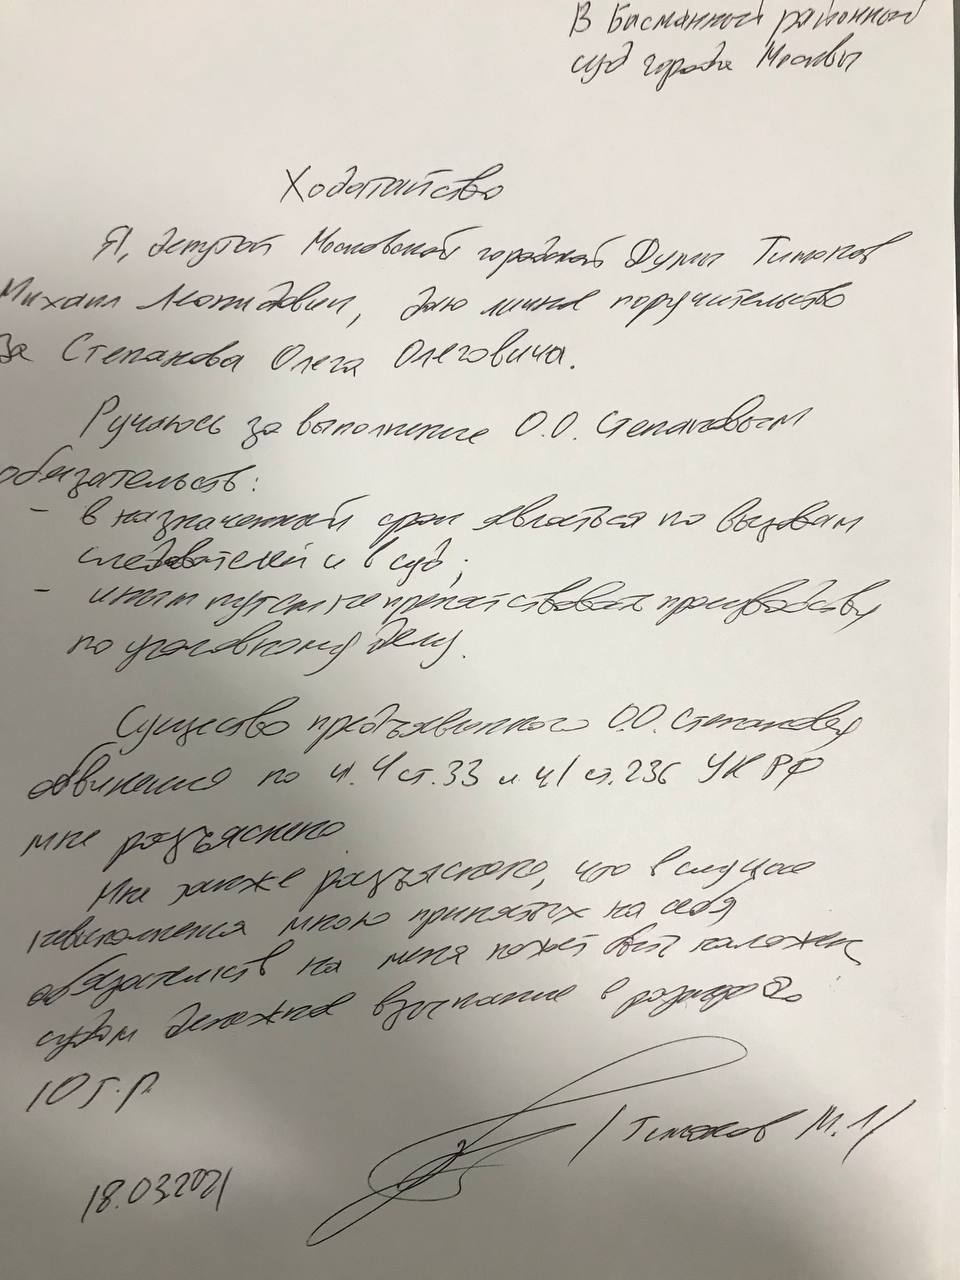 В Басманный районный
суд города Москвы
Ходатайство
Я, депутат Московской городской Думы Тимонов
Михаил Леонидович, даю личное поручительство
за Степанова Олега Олеговича.
Ручаюсь за выполнение О.О. Степановым
обязательств:
- в назначенный срок являться по вызовам
следователей и в суд;
- иным путем не препятствовать производству
по уголовному делу.
Существо предъявленного О.О. Степанову
обвинения по ч. 4 ст. 33 и ч 1 ст. 236 УК РФ
мне разъяснено.
Мне также разъяснено, что в случае
невыполнения мною принятых на себя
обязательств на меня может быть наложено
судом денежное взыскание в размере до
10 т.р.
/Тимонов М.Л/
18.03.2021